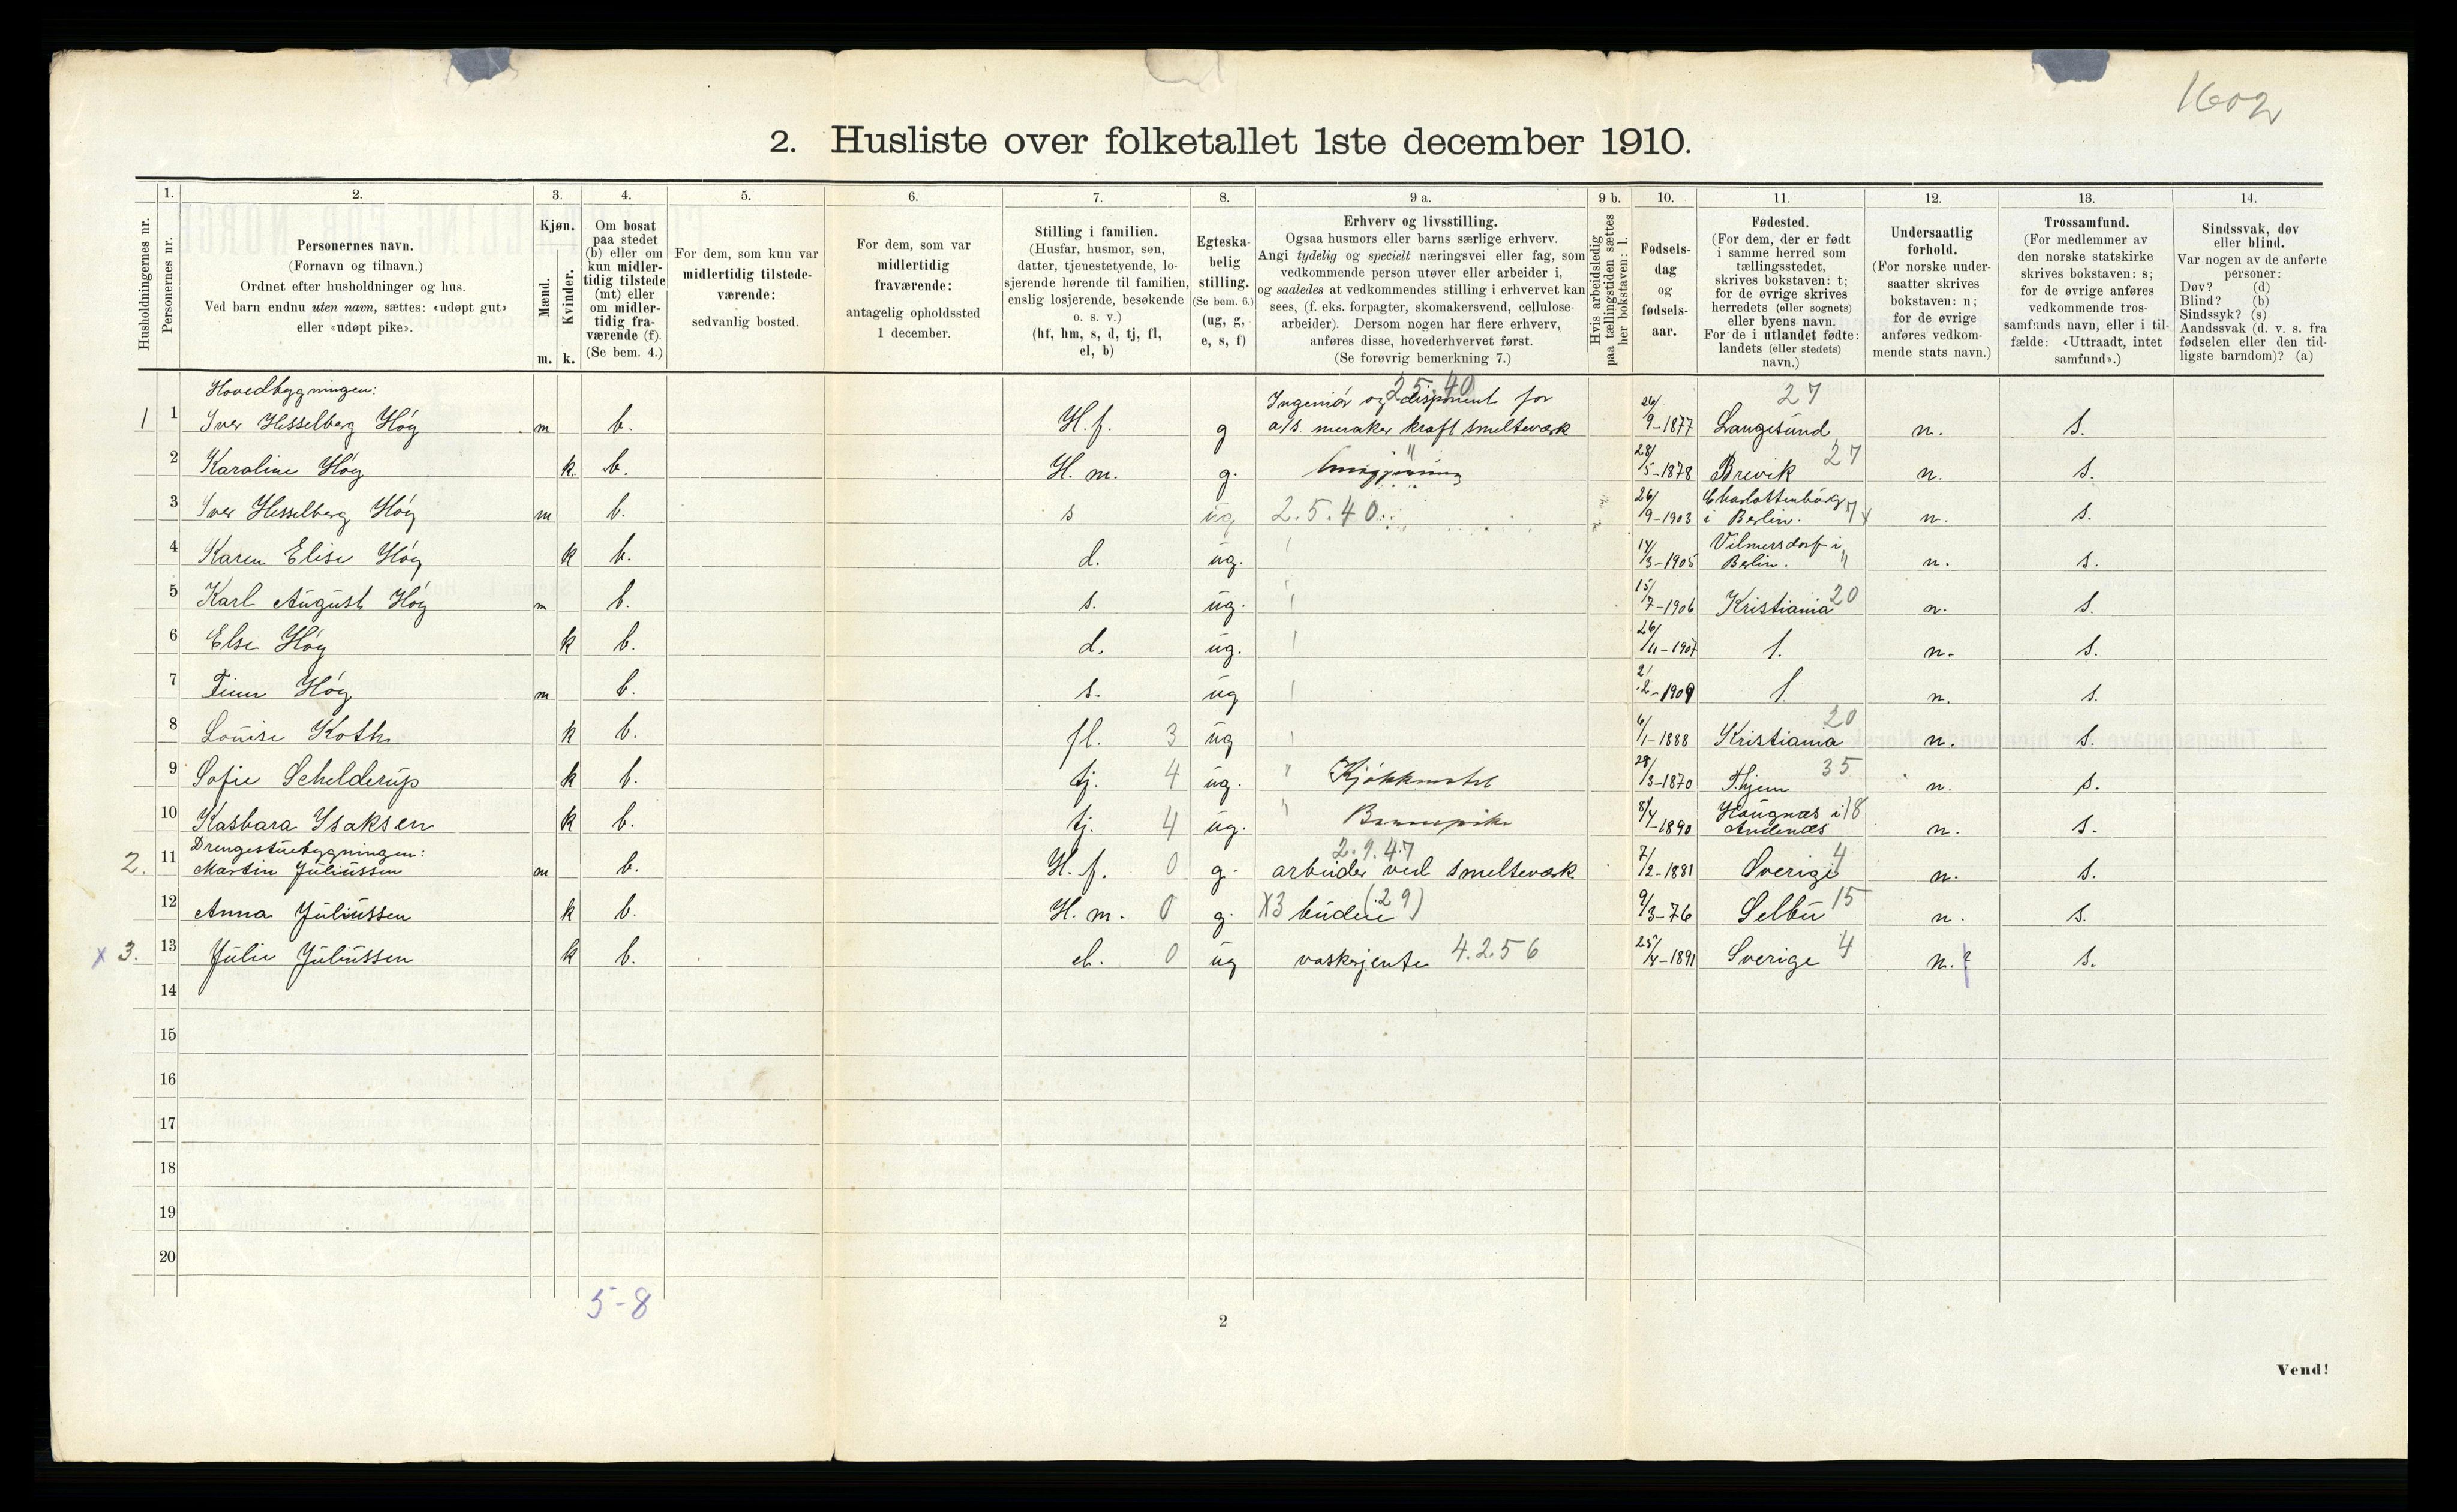 1602
2. Husliste over folketallet 1ste december 1910.
Husholdningernes nr.
1.
Personernes nr.
2.
Personernes navn.
(Fornavn og tilnavn.)
Ordnet efter husholdninger og hus.
Ved barn endnu uten navn, sættes: «udøpt gut»
eller «udøpt pike».
3.
Kjøn.
Mænd.
Kvinder.
m. k.
4.
Om bosat
paa stedet
(b) eller om
kun midler-
tidig tilstede
(mt) eller
om midler-
tidig fra-
værende (f).
(Se bem. 4.)
5.
For dem, som kun var
midlertidig tilstede-
værende:
sedvanlig bosted.
6.
For dem, som var
midlertidig
fraværende:
antagelig opholdssted
1 december.
7.
Stilling i familien.
(Husfar, husmor, søn,
datter, tjenestetyende, lo-
sjerende hørende til familien,
enslig losjerende, besøkende
o. s. v.)
(hf, hm, s, d, tj, fl,
el, b)
8.
Egteska-
belig
stilling.
(Se bem. 6.)
(ug, g,
e, s, f)
9 a.
Erhverv og livsstilling.
Ogsaa husmors eller barns særlige erhverv.
Angi tydelig og specielt næringsvei eller fag, som
vedkommende person utøver eller arbeider i,
og saaledes at vedkommendes stilling i erhvervet kan
sees, (f. eks. forpagter, skomakersvend, cellulose-
arbeider). Dersom nogen har flere erhverv,
anføres disse, hovederhvervet først.
(Se forøvrig bemerkning 7.)
9 b.
Hvis arbeidsledig
paa tællingstiden sættes
her bokstaven: l.
10.
Fødsels-
dag
og
fødsels-
aar.
11.
Fødested.
(For dem, der er født
i samme herred som
tællingsstedet,
skrives bokstaven: t;
for de øvrige skrives
herredets (eller sognets)
eller byens navn.
For de i utlandet fødte:
landets (eller stedets)
navn.)
12.
Undersaatlig
forhold.
(For norske under-
saatter skrives
bokstaven: n;
for de øvrige
anføres vedkom-
mende stats navn.)
13.
Trossamfund.
(For medlemmer av
den norske statskirke
skrives bokstaven: s;
for de øvrige anføres
vedkommende tros-
samfunds navn, eller i til-
fælde: «Uttraadt, intet
samfund».)
14.
Sindssvak, døv
eller blind.
Var nogen av de anførte
personer:
Døv? (d)
Blind? (b)
Sindssyk? (s)
Aandssvak (d. v. s. fra
fødselen eller den tid-
ligste barndom)? (a)
Hovedbygningen: 2 5. 40 27
Ingeniør og disponent for
1 1 Iver Hesselberg Høy m b. H. f. g a/s. meraker kraft smelteverk 26/9-1877 Langesund n. s.
2 Karoline Høy k. b. H. m. g. " 28/5-1878 Brevik 27 n. s.
3 Iver Hesselberg Høy m b. s ug 2.5.40 26/9-1903 Charlottenburg i Berlin. n. s.
4 Karen Elise Høy k b. d. ug. 14/3-1905 Vilmersdorf i Berlin. " n. s.
5 Karl August Høy m b. s. ug. 15/7-1906 Kristiania 20 n. s.
6 Else Høy k b. d. ug. 26/11-1907 n. s.
7 Finn Høy m b. s. ug 2/2-1909 n. s.
8 Louise Koth k b. fl. 3 ug 6/1-1888 Kristiania 20 n. s.
9 Sofie Schelderup k b. tj. 4 ug. " 28/3-1870 T.hjem 35 n. s.
10 Kasbara Isaksen k b. tj. 4 ug. " Barnepike 8/4-1890 Haugnæs i Andenæs 18 n. s.
Drengestuebygningen: 2.9.47
2. 11 Martin Juliussen m b. H. f. 0 g. arbeider ved smelteverk 7/2-1881 Sverige 4 n. s.
12 Anna Juliussen k b. H. m. 0 g. X3 budeie (29) 9/3-76 Selbu 15 n. s.
x 3. 13 Julie Juliussen k b. el. 0 ug vaskejente 4.2.56 25/4-1891 Sverige 4 n.? s.
14
15
16
17
18
19
20
5-8
2
Vend!